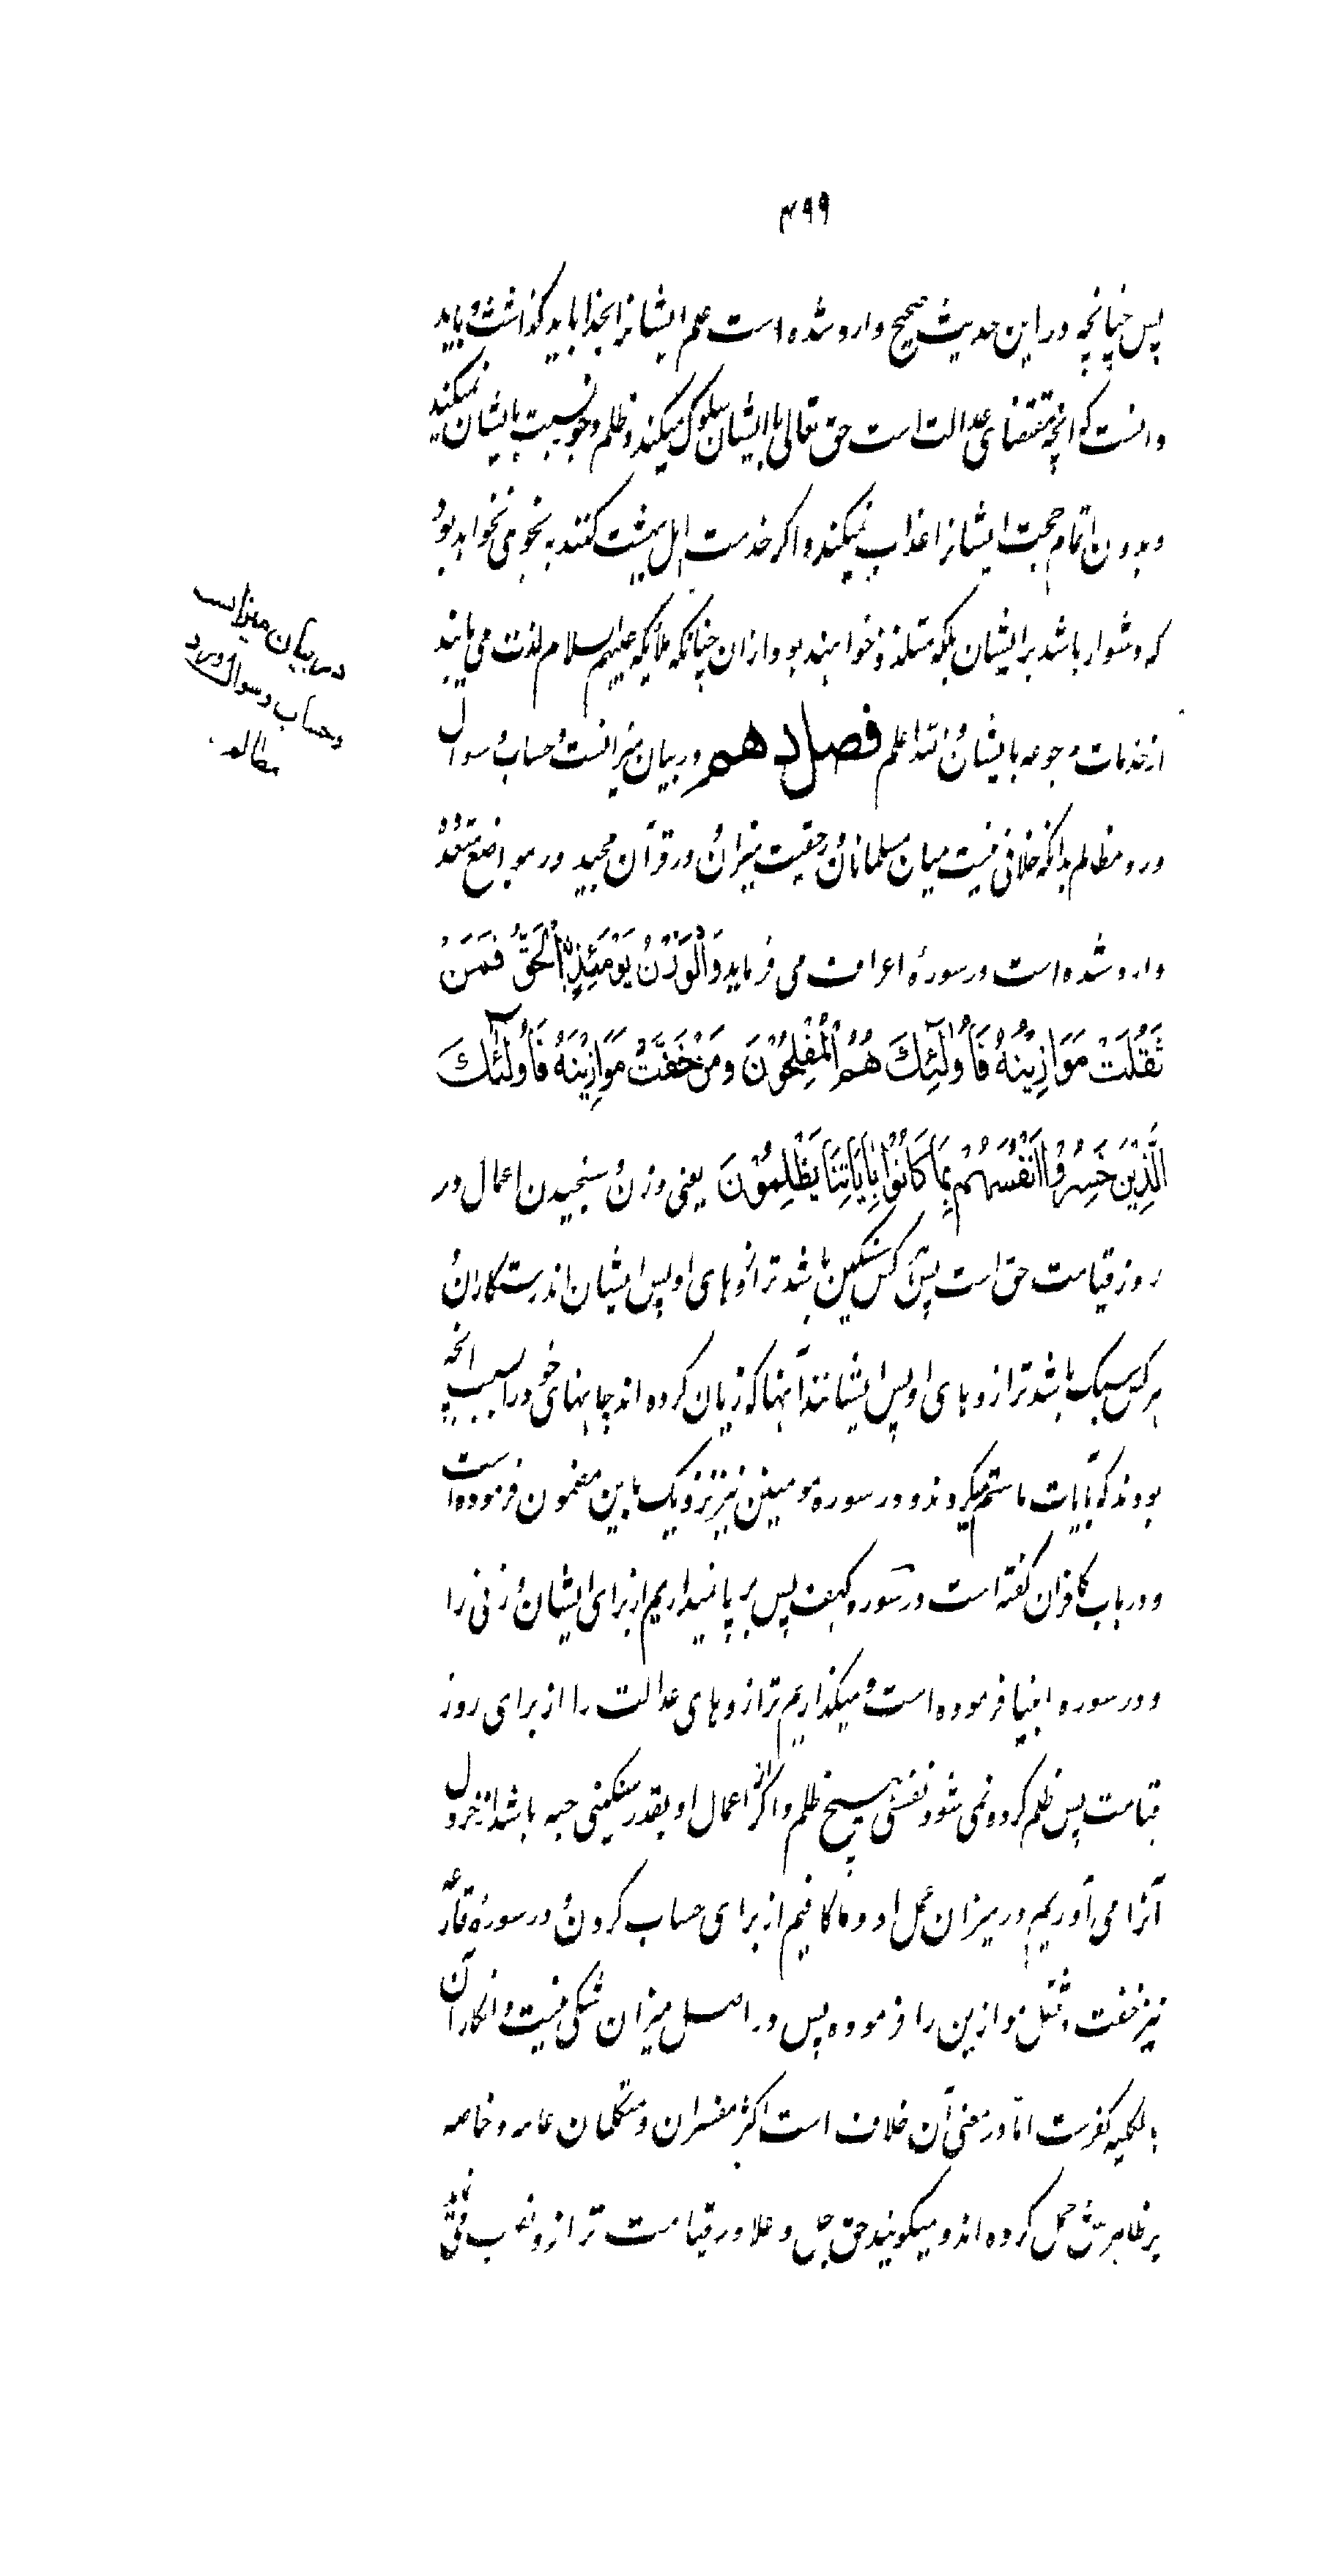 ۴۹۹
پس چنانچه در این حدیث صحیح وارد شده است علم ایشانرا بخدا باید گذاشت و باید
دانست که انچه مقتضای عدالت است حق تعالی با ایشان سلوک میکند و ظلم و جور نسبت بایشان نمیکند
و بدون اتمام حجت ایشانرا عذاب نمیکند و اگر خدمت اهل بهشت کنند به نحوی نخواهد بود
که دشوار باشد بر ایشان بلکه متلذذ خواهند بود از ان چنانکه ملائکه علیهم السلام لذت می یابند
از خدمات مرجوعه بایشان و الله اعلم فصل دهم در بیان میزانست و حساب و سوال
و رد مظالم بدانکه خلافی نیست میان مسلمانان در حقیت میزان و در قرآن مجید در مواضع متعدد
وارد شده است در سورهٔ اعراف می فرماید وَالْوَزْنُ يَوْمَئِذٍ الْحَقُّ فَمَنْ
ثَقُلَتْ مَوَازِيْنُهُ فَأُولٰئِكَ هُمُ الْمُفْلِحُوْنَ وَمَنْ خَفَّتْ مَوَازِيْنُهُ فَأُولٰئِكَ
الَّذِيْنَ خَسِرُوْا اَنْفُسَهُمْ بِمَا كَانُوْا بِاٰيَاتِنَا يَظْلِمُوْنَ یعنی وزن و سنجیدن اعمال در
روز قیامت حق است پس هر کس سنگین باشد ترازوهای او پس ایشان اند رستکاران و
هر کس سبک باشد ترازوهای او پس ایشانند آنها که زیان کرده اند جانهای خود را بسبب انچه
بودند که بآیات ما ستم میکردند و در سوره مومنین نیز نزدیک باین مضمون فرموده است
و در باب کافران گفته است در سوره کهف پس بر پا نمیداریم از برای ایشان وزنی را
و در سوره انبیا فرموده است و میگذاریم ترازوهای عدالت را از برای روز
قیامت پس ظلم کرده نمی شود نفسی هیچ ظلم و اگر از اعمال او بقدر سنگینی حبه باشد از خردل
آنرا می آوریم در میزان عمل او و ما کافیم از برای حساب کردن و در سورهٔ قارعه
نیز خفت و ثقل موازین را فرموده پس در اصل میزان شکی نیست و انکار آن
بالکلیه کفرست اما در معنی آن خلاف است اکثر مفسران و متکلمان عامه و خاصه
بر ظاهرش حمل کرده اند و میگویند حق جل و علا در قیامت ترازو نصب
در بیان میزانست
و حساب و سوال و رد
مظالم